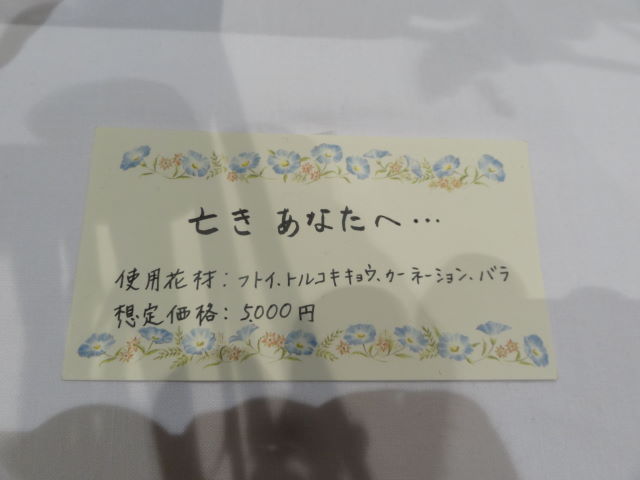 亡き あなたへ…
使用花材：フトイ、トルコキキョウ、カーネーション、バラ
想定価格：5,000円